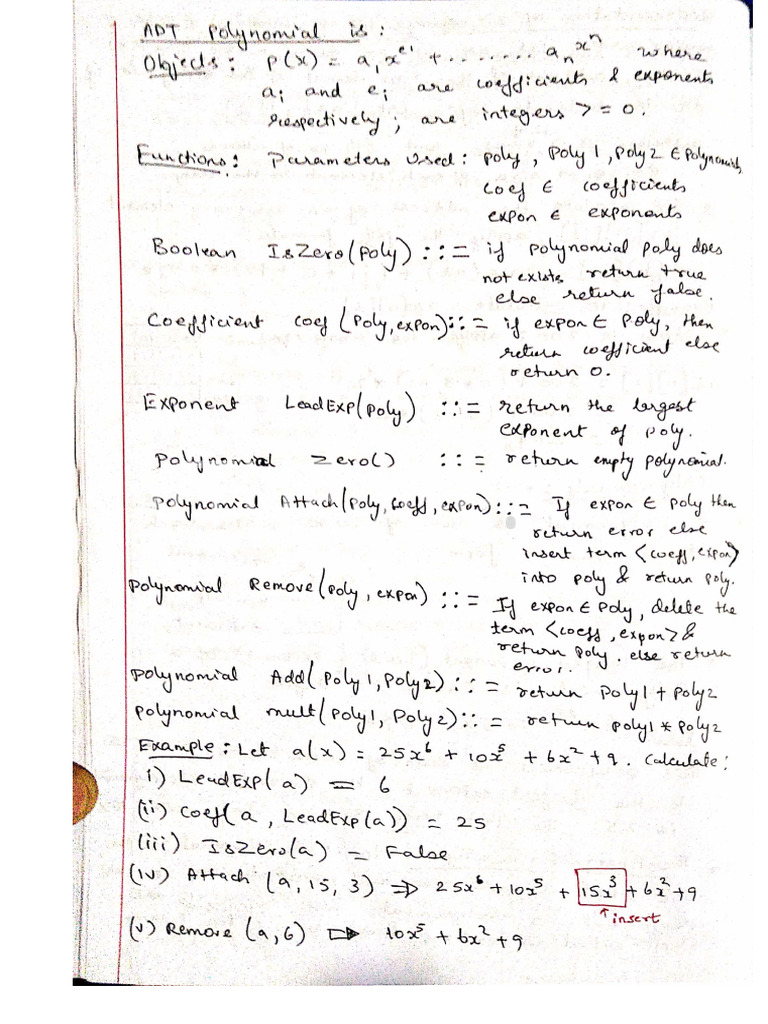 ADT Polynomial is:
Objects: P(x) = a₁x^e1 + ........ aₙxⁿ where
aᵢ and eᵢ are coefficients & exponents
respectively; are integers >= 0.
Functions: Parameters Used: poly, Poly 1, Poly 2 ∈ Polynomials
coef ∈ coefficients
expon ∈ exponents
Boolean IsZero(Poly) ::= if polynomial poly does
not exists return true
else return false.
Coefficient coef (Poly, expon) ::= if expon ∈ Poly, then
return coefficient else
return 0.
Exponent LeadExp(Poly) ::= return the largest
exponent of poly.
Polynomial Zero() ::= return empty polynomial.
Polynomial Attach(Poly, Coeff, expon) ::= If expon ∈ poly then
return error else
insert term <coeff, expon>
into poly & return poly.
Polynomial Remove(Poly, expon) ::= If expon ∈ Poly, delete the
term <coeff, expon> &
return poly. else return
error.
Polynomial Add(Poly 1, Poly 2) ::= return Poly1 + Poly2
Polynomial mult(Poly1, Poly2) ::= return poly1 * Poly2
Example: Let a(x) = 25x⁶ + 10x⁵ + 6x² + 9. Calculate:
i) LeadExp(a) = 6
(ii) Coef(a, LeadExp(a)) = 25
(iii) IsZero(a) = False
(iv) Attach (a, 15, 3) ⇒ 25x⁶ + 10x⁵ + 15x³ + 6x² + 9
↑ insert
(v) Remove (a, 6) ⇒ 10x⁵ + 6x² + 9